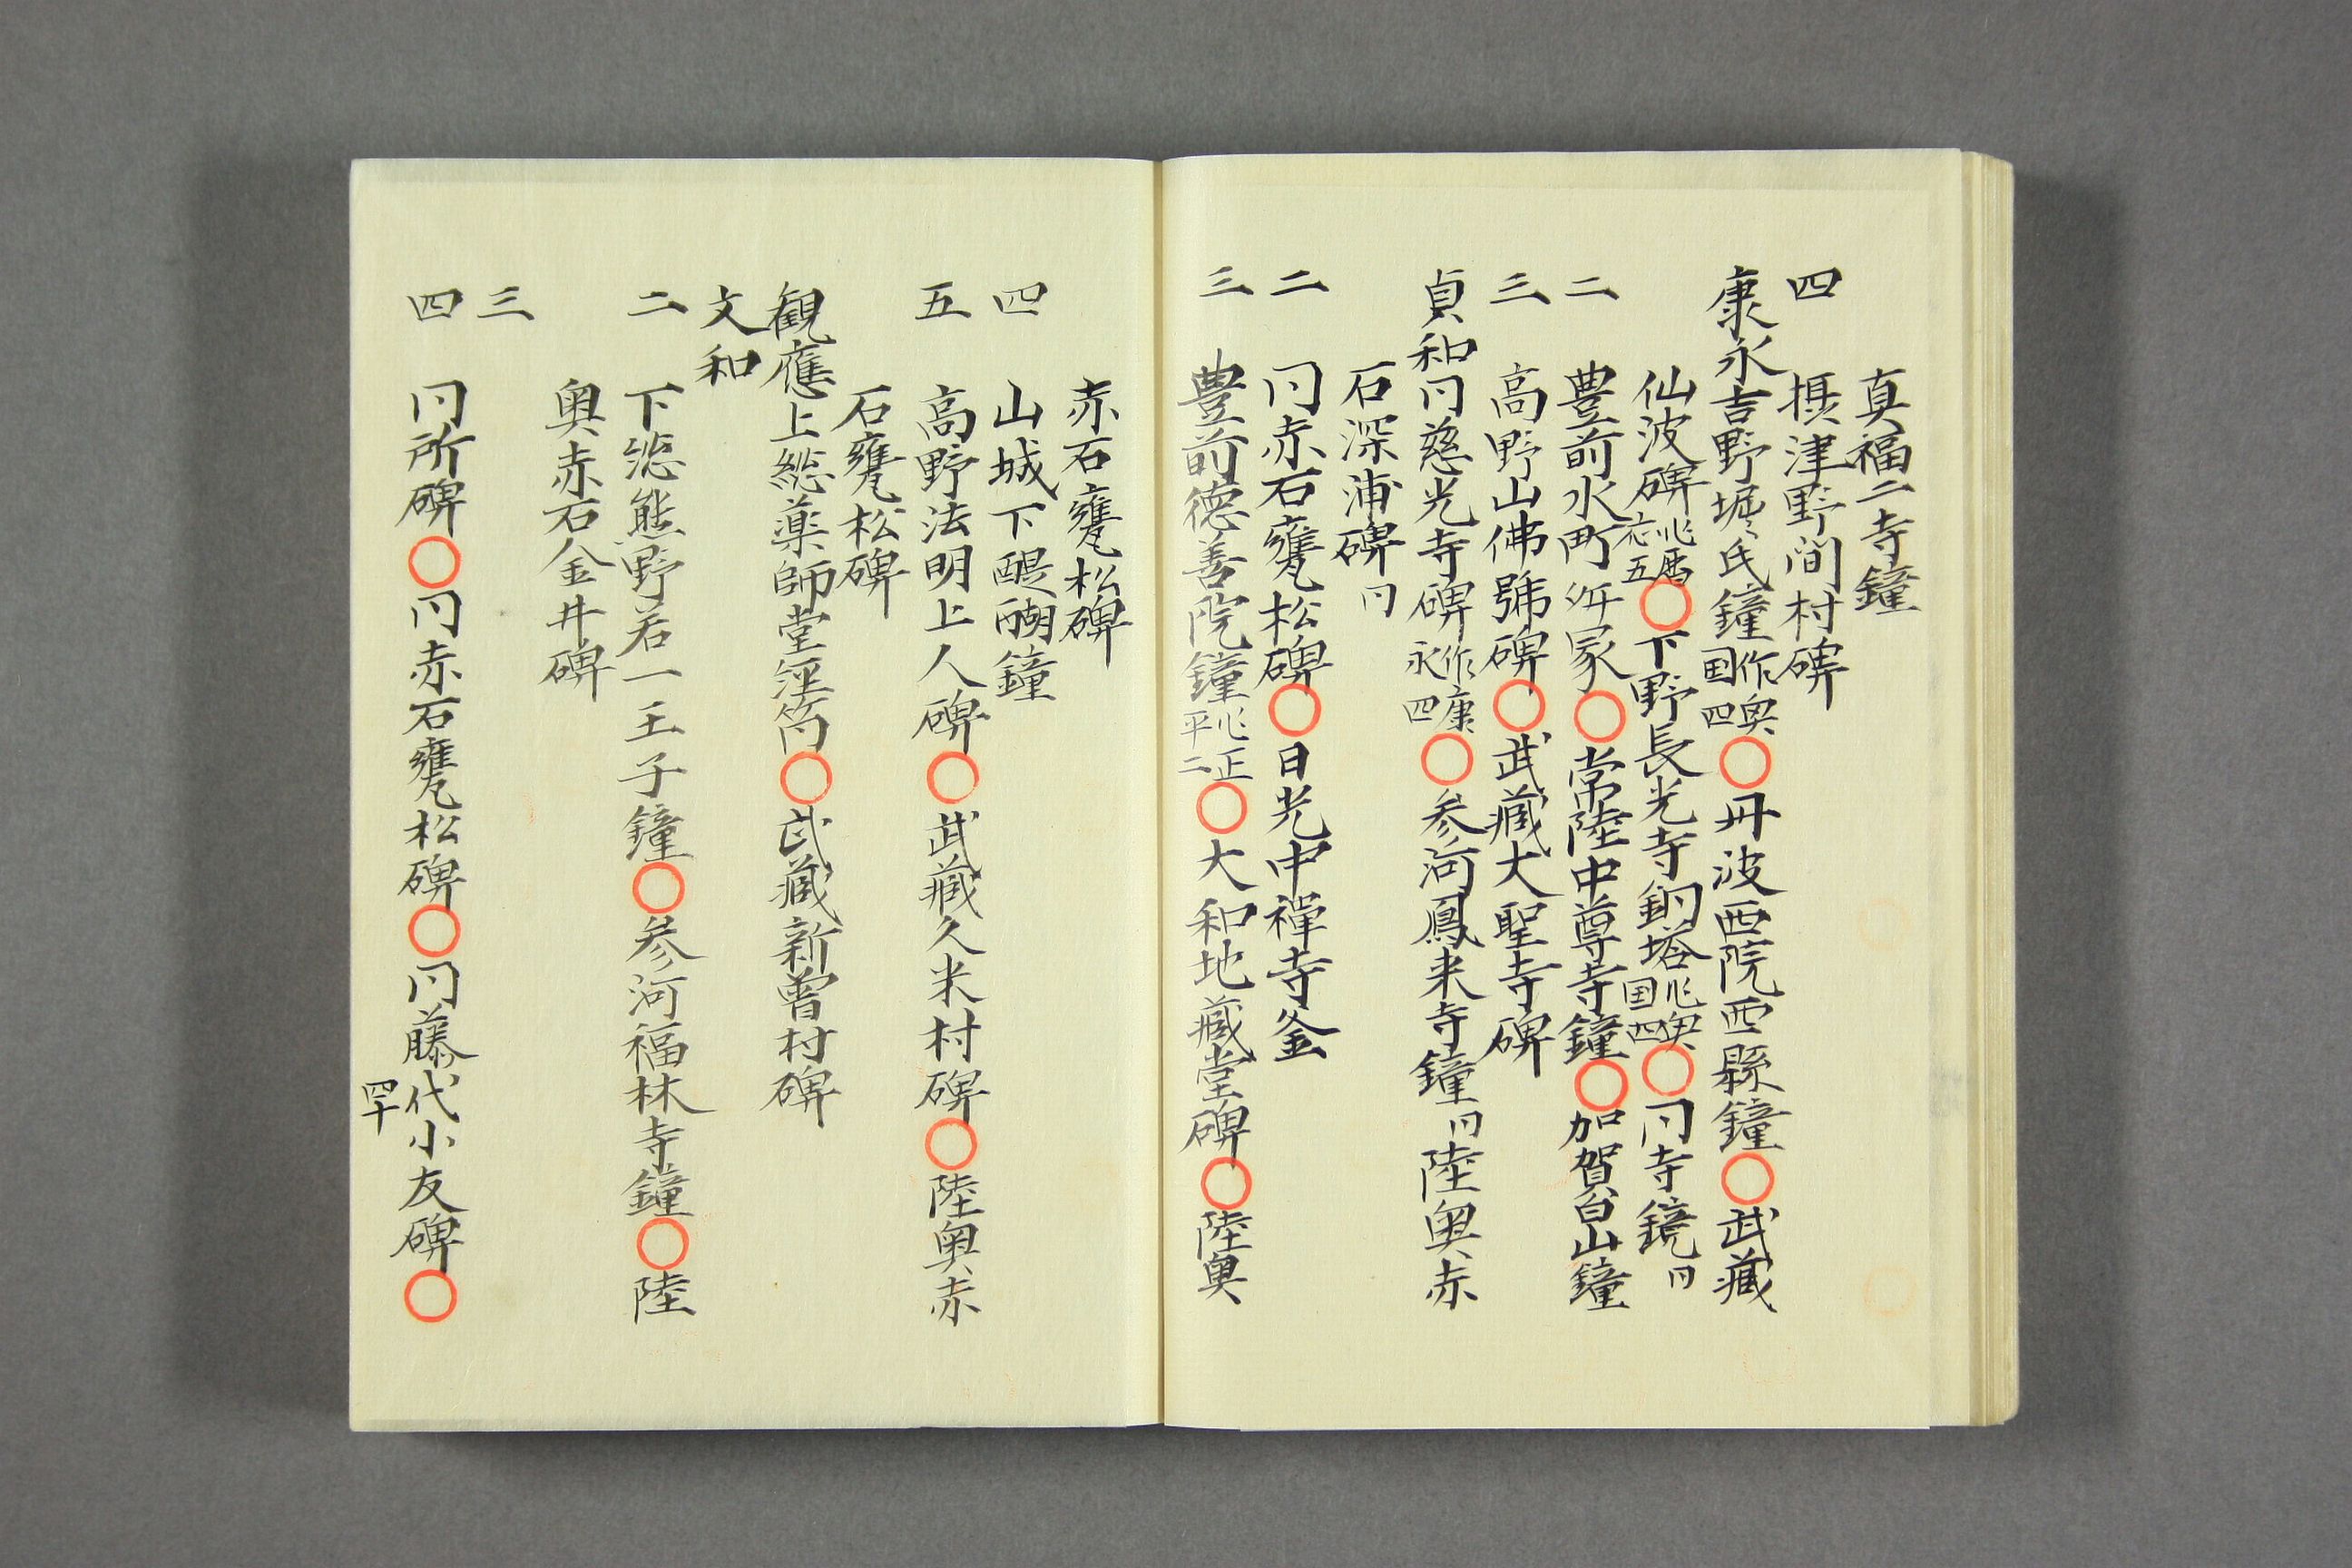 真福二寺鐘
四 摂津野間村碑
康永吉野堀氏鐘作興国四〇丹波西院西縣鐘〇武藏
仙波碑北暦応五〇下野長光寺銅塔北興国四〇冋寺鏡冋
二 豊前水町冢〇常陸中尊寺鐘〇加賀白山鐘
三 高野山佛號碑〇武藏大聖寺碑
貞和冋慈光寺碑作康永四〇参河鳳来寺鐘冋陸奥赤
石深浦碑冋
二 冋赤石甕松碑〇日光中禅寺釜
三 豊前德善院鐘北正平二〇大和地藏堂碑〇陸奥
赤石甕松碑
四 山城下醍醐鐘
五 高野法明上人碑〇武藏久米村碑〇陸奥赤
石甕松碑
観應上総薬師堂経筒〇武藏新曽村碑
文和
二 下総熊野若一王子鐘〇参河福林寺鐘〇陸
奥赤石金井碑
三
四 冋所碑〇冋赤石甕松碑〇冋藤代小友碑〇
四十